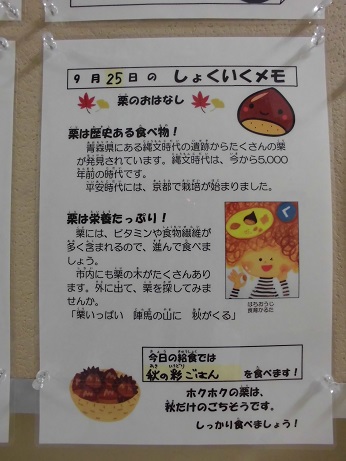 9月25日の しょくいくメモ
栗のおはなし
栗は歴史ある食べ物！
青森県にある縄文時代の遺跡からたくさんの栗
が発見されています。縄文時代は、今から5,000
年前の時代です。
平安時代には、京都で栽培が始まりました。
栗は栄養たっぷり！
栗には、ビタミンや食物繊維が
多く含まれるので、進んで食べま
しょう。
市内にも栗の木がたくさんあり
ます。外に出て、栗を探してみま
せんか。
「栗いっぱい 陣馬の山に 秋がくる」
く
はちおうじ
食育かるた
今日の給食では
秋の彩ごはん を食べます！
ホクホクの栗は、
秋だけのごちそうです。
しっかり食べましょう！